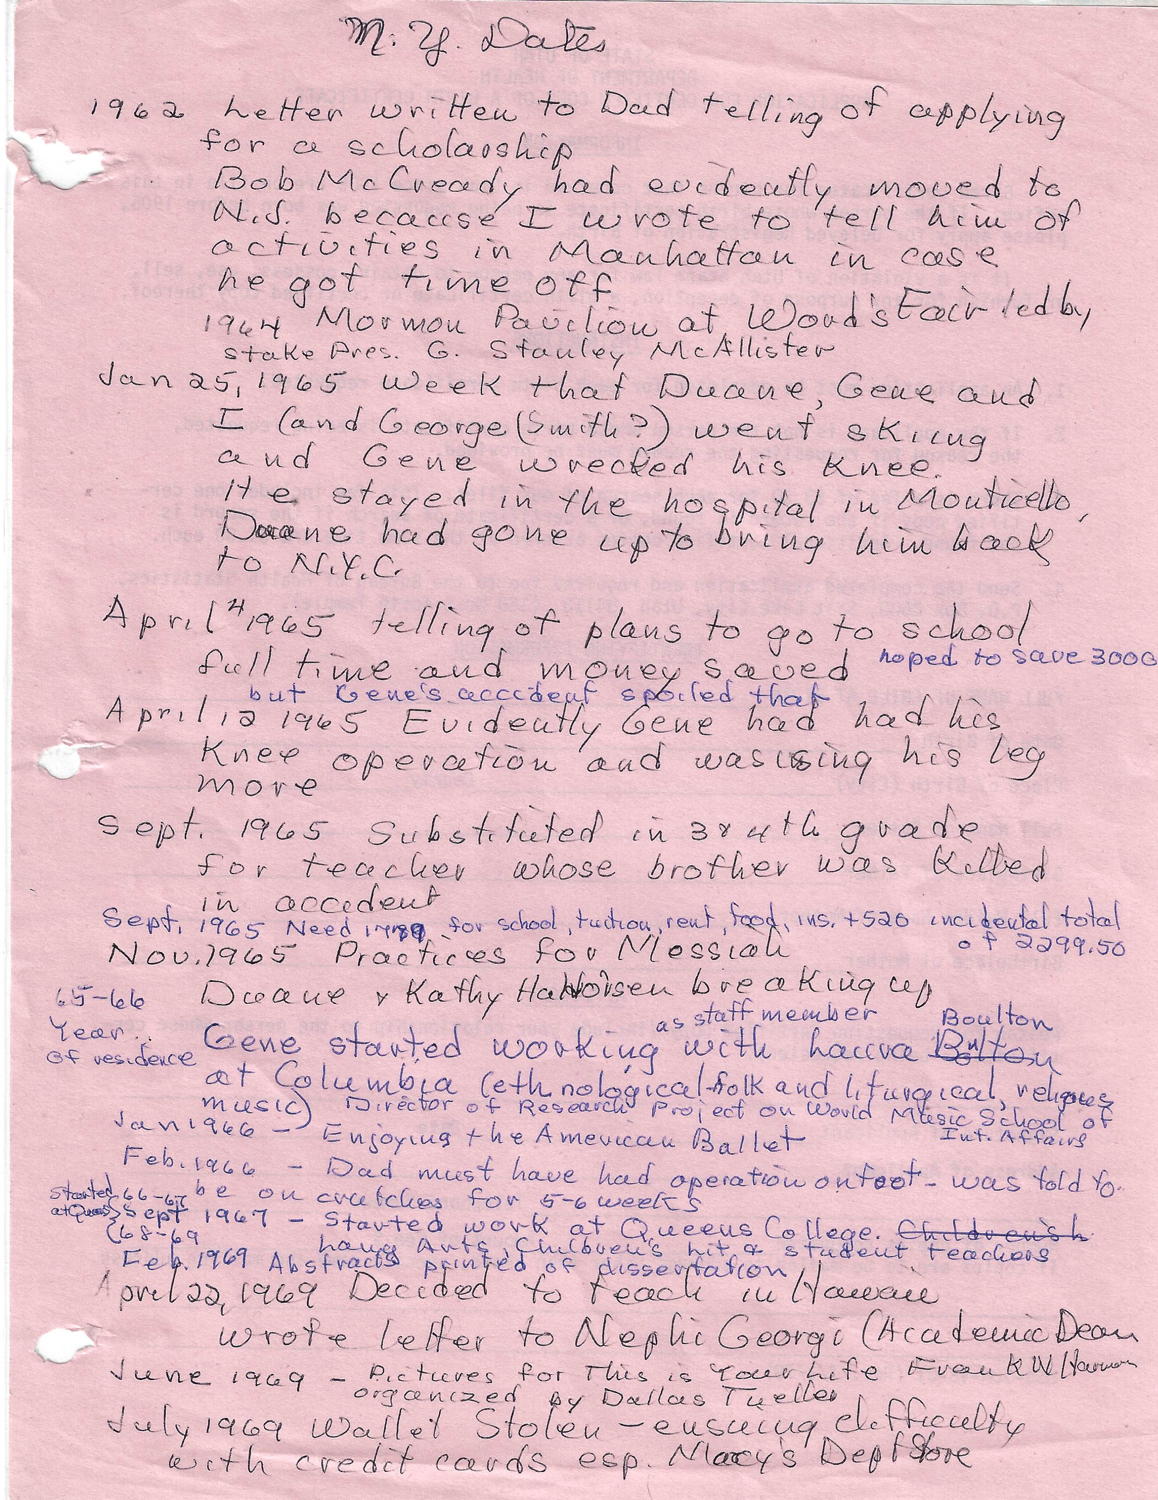 N.Y. Dates
1962 Letter written to Dad telling of applying
for a scholarship
Bob McCready had evidently moved to
N.J. because I wrote to tell him of
activities in Manhattan in case
he got time off
1964 Mormon Pavilion at World's Fair led by
stake Pres. G. Stanley McAllister
Jan 25, 1965 Week that Duane, Gene and
I (and George (Smith?) went skiing
and Gene wrecked his knee.
He stayed in the hospital in Monticello,
Duane had gone up to bring him back
to N.Y.C.
April 4 1965 telling of plans to go to school
full time and money saved hoped to save 3000
but Gene's accident spoiled that
April 12 1965 Evidently Gene had had his
knee operation and was using his leg
more
Sept. 1965 Substituted in 3 & 4th grade
for teacher whose brother was killed
in accident
Sept. 1965 Need for school, tuction, rent, food, ins. + 520 incidental total
of 2299.50
Nov. 1965 Practices for Messiah
Duane & Kathy breaking up
65-66
Year
of residence
Gene started working with as staff member Boulton
at Columbia (ethnological-folk and liturgical, religous
music) Director of Research Project on World Music School of
Int. Affairs
Jan 1966 - Enjoying the American Ballet
Feb. 1966 - Dad must have had operation on foot - was told to
be on crutches for 5-6 weeks
Started at Queens 66-67
68-69
Sept 1967 - Started work at Queens College. Children's
Arts, Children's lit & student teachers
Feb. 1969 Abstracts printed of dissertation
April 22, 1969 Decided to teach in Hawaii
wrote letter to Nephi Georgi (Academic Dean
June 1969 - Pictures for This is Your Life Frank W.
organized by Dallas Tueller
July 1969 Wallet Stolen - ensuing difficulty
with credit cards esp. Macy's Dept Store